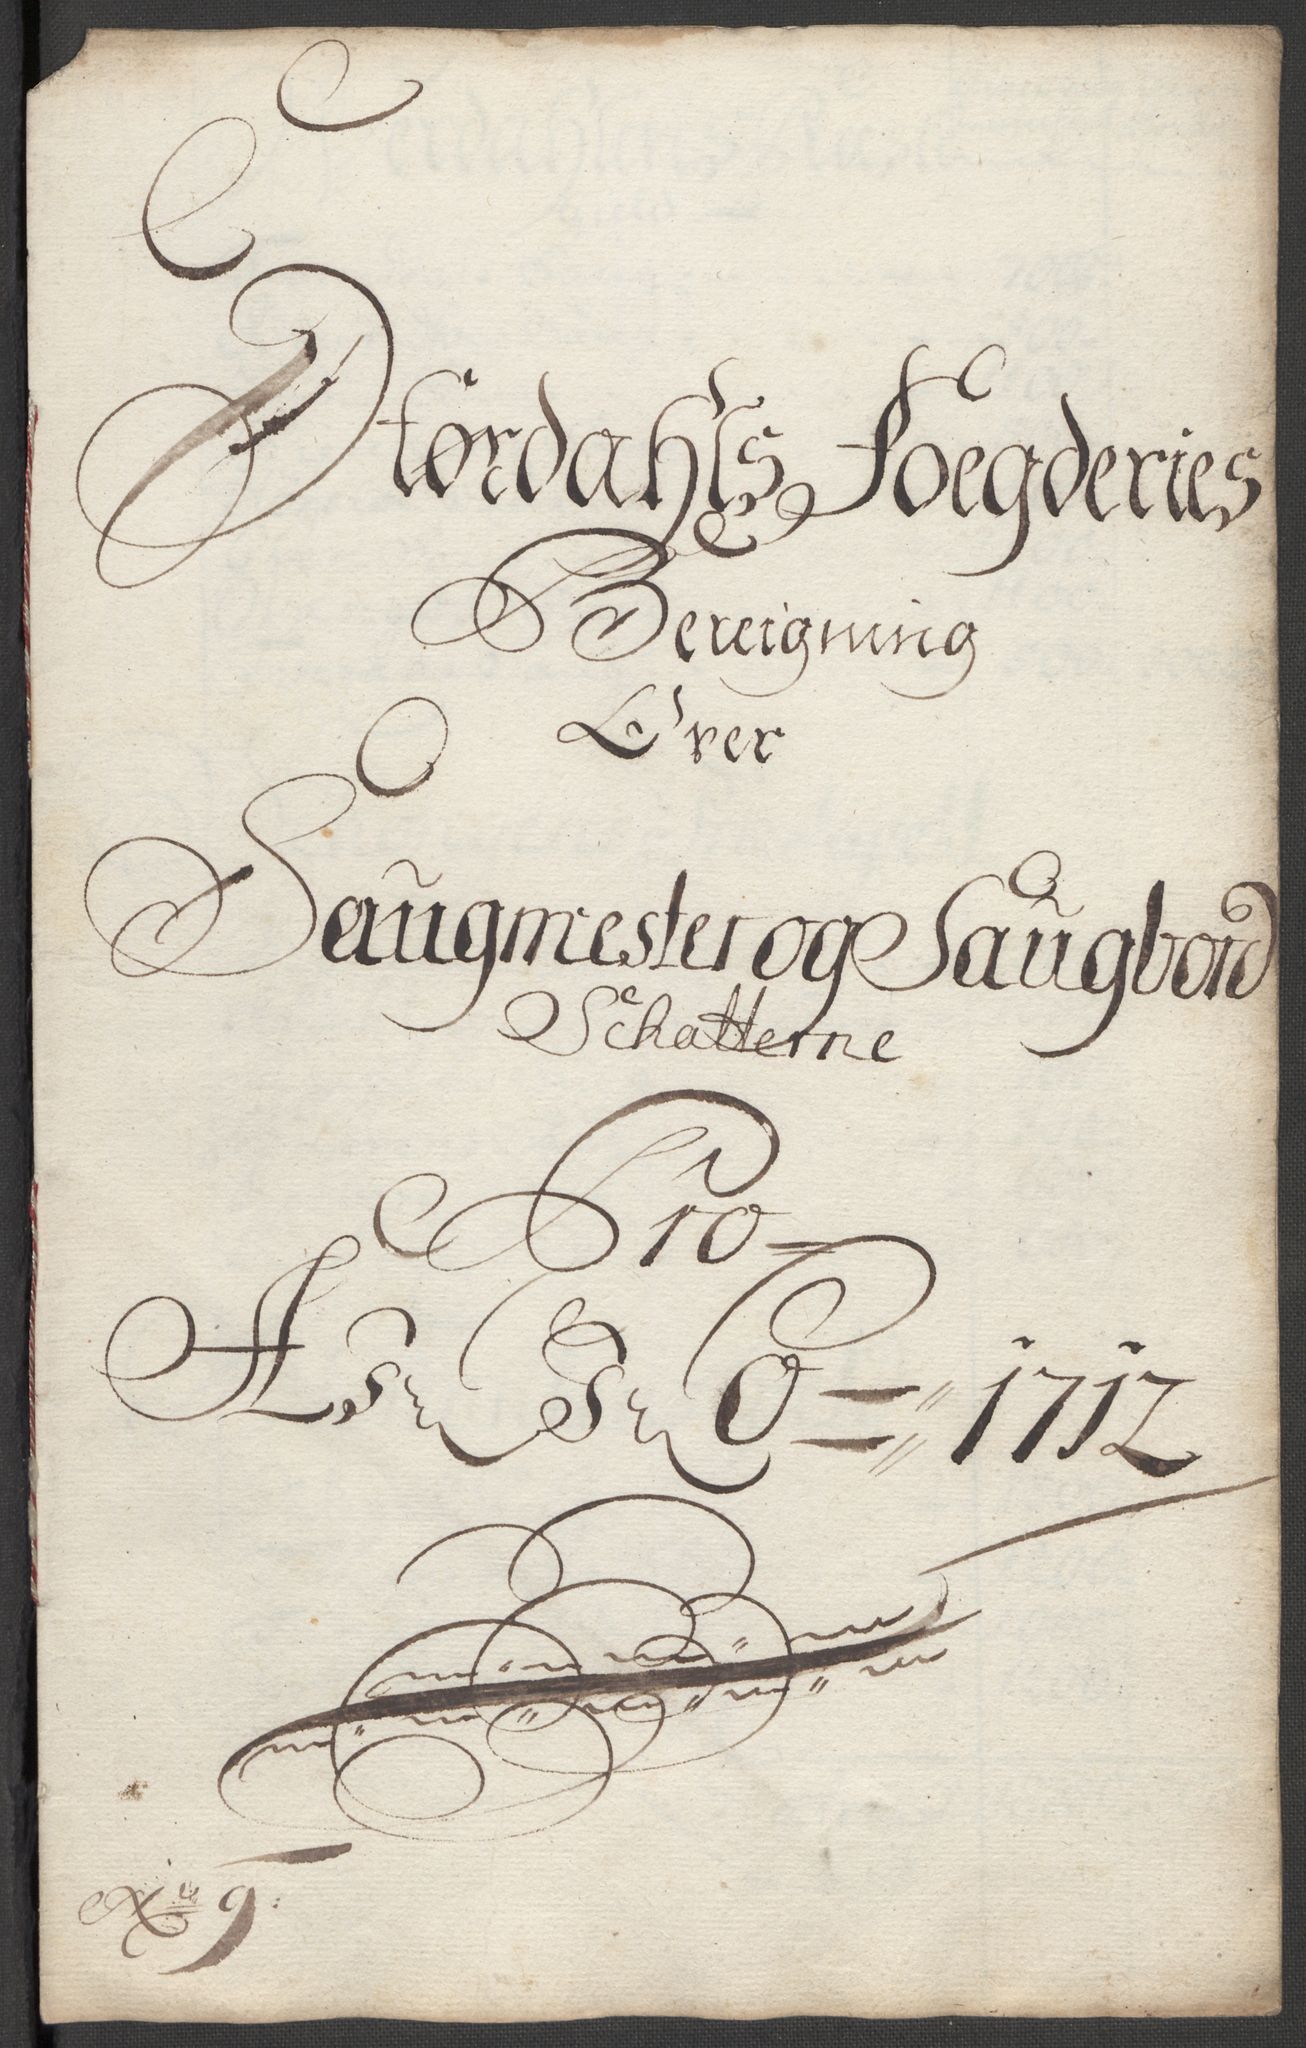 Størdahls Foegderies
Bereigning
Over
Saugmester og Saugbord
Schatterne
Pro
A N N O 1712
No 9: